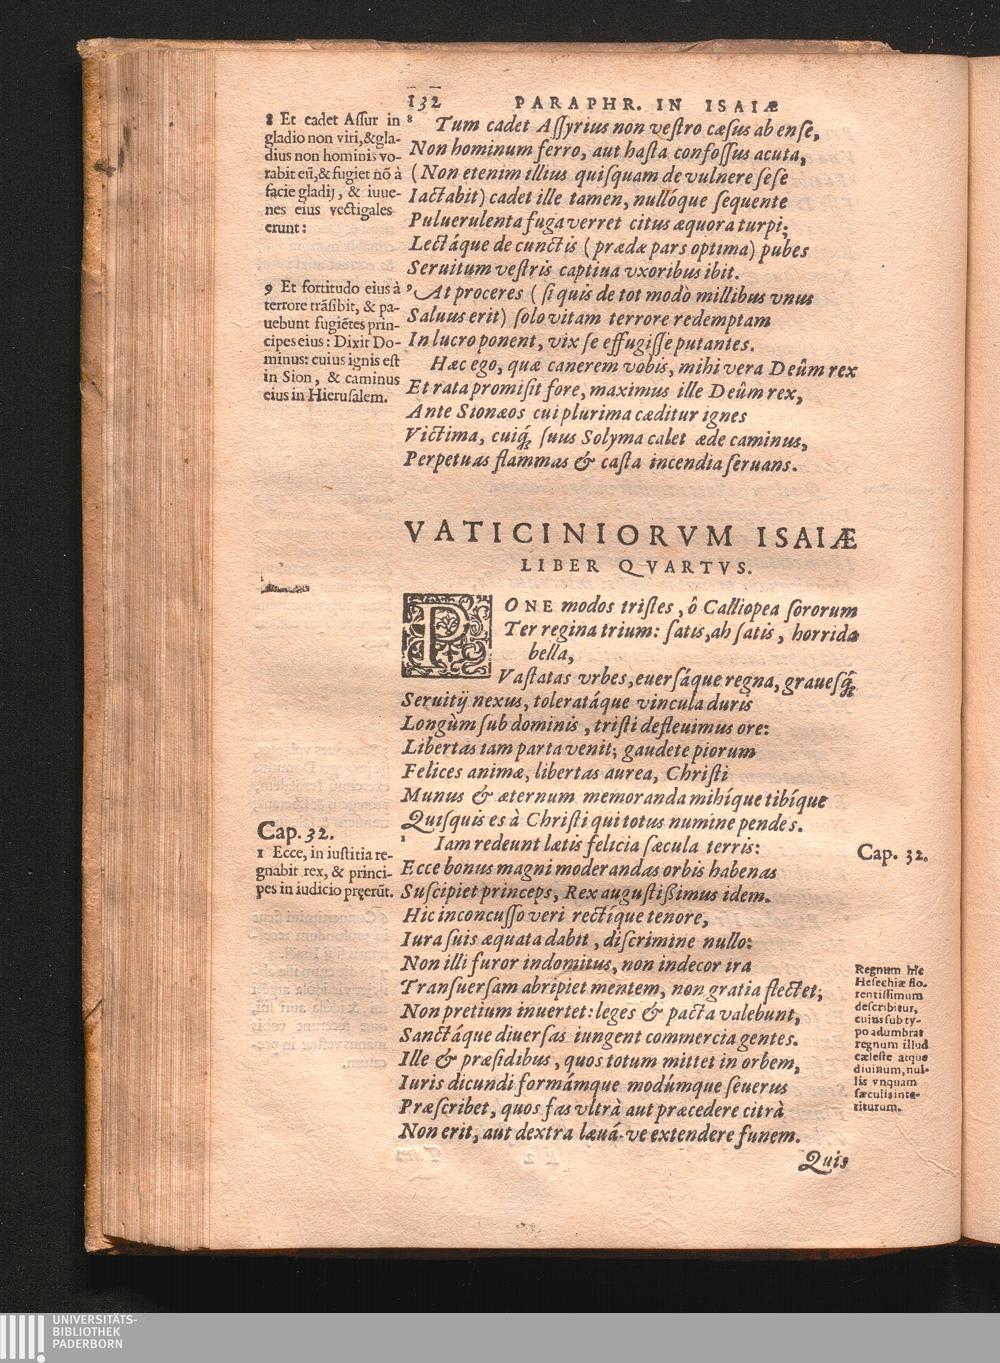 132 PARAPHR. IN ISAIÆ
8 Et cadet Aſſur in
gladio non viri,&gla-
dius non hominis vo-
rabit eū,& fugiet nō à
facie gladij, & iuue-
nes eius vectigales
erunt:
9 Et fortitudo eius à
terrore trāſibit, & pa-
uebunt fugiētes prin-
cipes eius: Dixit Do-
minus: cuius ignis eſt
in Sion, & caminus
eius in Hieruſalem.
8 Tum cadet Aſſyrius non veſtro cæſus ab enſe,
Non hominum ferro, aut haſta confoſſus acuta,
(Non etenim illius quiſquam de vulnere ſeſe
Iactabit) cadet ille tamen, nullóque ſequente
Puluerulenta fuga verret citus æquora turpi;
Lectáque de cunctis (prædæ pars optima) pubes
Seruitum veſtris captiua vxoribus ibit.
9 At proceres (ſi quis de tot modò millibus vnus
Saluus erit) ſolo vitam terrore redemptam
In lucro ponent, vix ſe effugiſſe putantes.
Hæc ego, quæ canerem vobis, mihi vera Deûm rex
Et rata promiſit fore, maximus ille Deûm rex,
Ante Sionæos cui plurima cæditur ignes
Victima, cuiq́; ſuus Solyma calet æde caminus,
Perpetuas flammas & caſta incendia ſeruans.
VATICINIORVM ISAIÆ
LIBER QVARTVS.
PONE modos triſtes, ô Calliopea ſororum
Ter regina trium: ſatis, ah ſatis, horrida
bella,
Vaſtatas vrbes, euerſáque regna, graueſq́;
Seruitij nexus, toleratáque vincula duris
Longùm ſub dominis, triſti defleuimus ore:
Libertas iam parta venit; gaudete piorum
Felices animæ, libertas aurea, Chriſti
Munus & æternum memoranda mihíque tibíque
Quiſquis es à Chriſti qui totus numine pendes.
Cap. 32.
1 Ecce, in iuſtitia re-
gnabit rex, & princi-
pes in iudicio pręerūt.
1 Iam redeunt lætis felicia ſæcula terris:
Ecce bonus magni moderandas orbis habenas
Suſcipiet princeps, Rex auguſtißimus idem.
Hic inconcuſſo veri rectíque tenore,
Iura ſuis æquata dabit, diſcrimine nullo:
Non illi furor indomitus, non indecor ira
Tranſuerſam abripiet mentem, non gratia flectet;
Non pretium inuertet: leges & pacta valebunt,
Sanctáque diuerſas iungent commercia gentes.
Ille & præſidibus, quos totum mittet in orbem,
Iuris dicundi formámque modúmque ſeuerus
Præſcribet, quos fas vltrà aut præcedere citrà
Non erit, aut dextra læuá-ve extendere funem.
Cap. 32.
Regnum hîc
Heſechiæ flo-
rentiſſimum
deſcribitur,
cuius ſub ty-
po adumbrat
regnum illud
cæleſte atque
diuinum, nul-
lis vnquam
ſæculis inte-
riturum.
Quis
UNIVERSITÄTS-
BIBLIOTHEK
PADERBORN